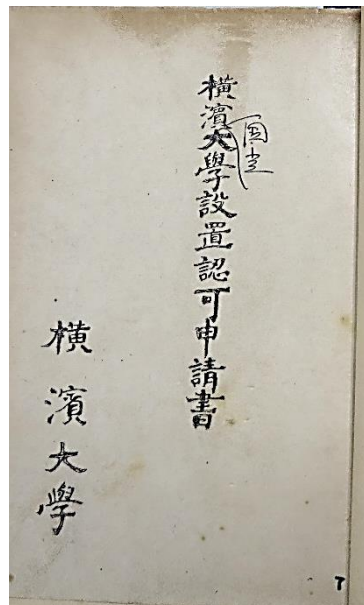 横濱大學設置認可申請書
国立
横濱大學
7